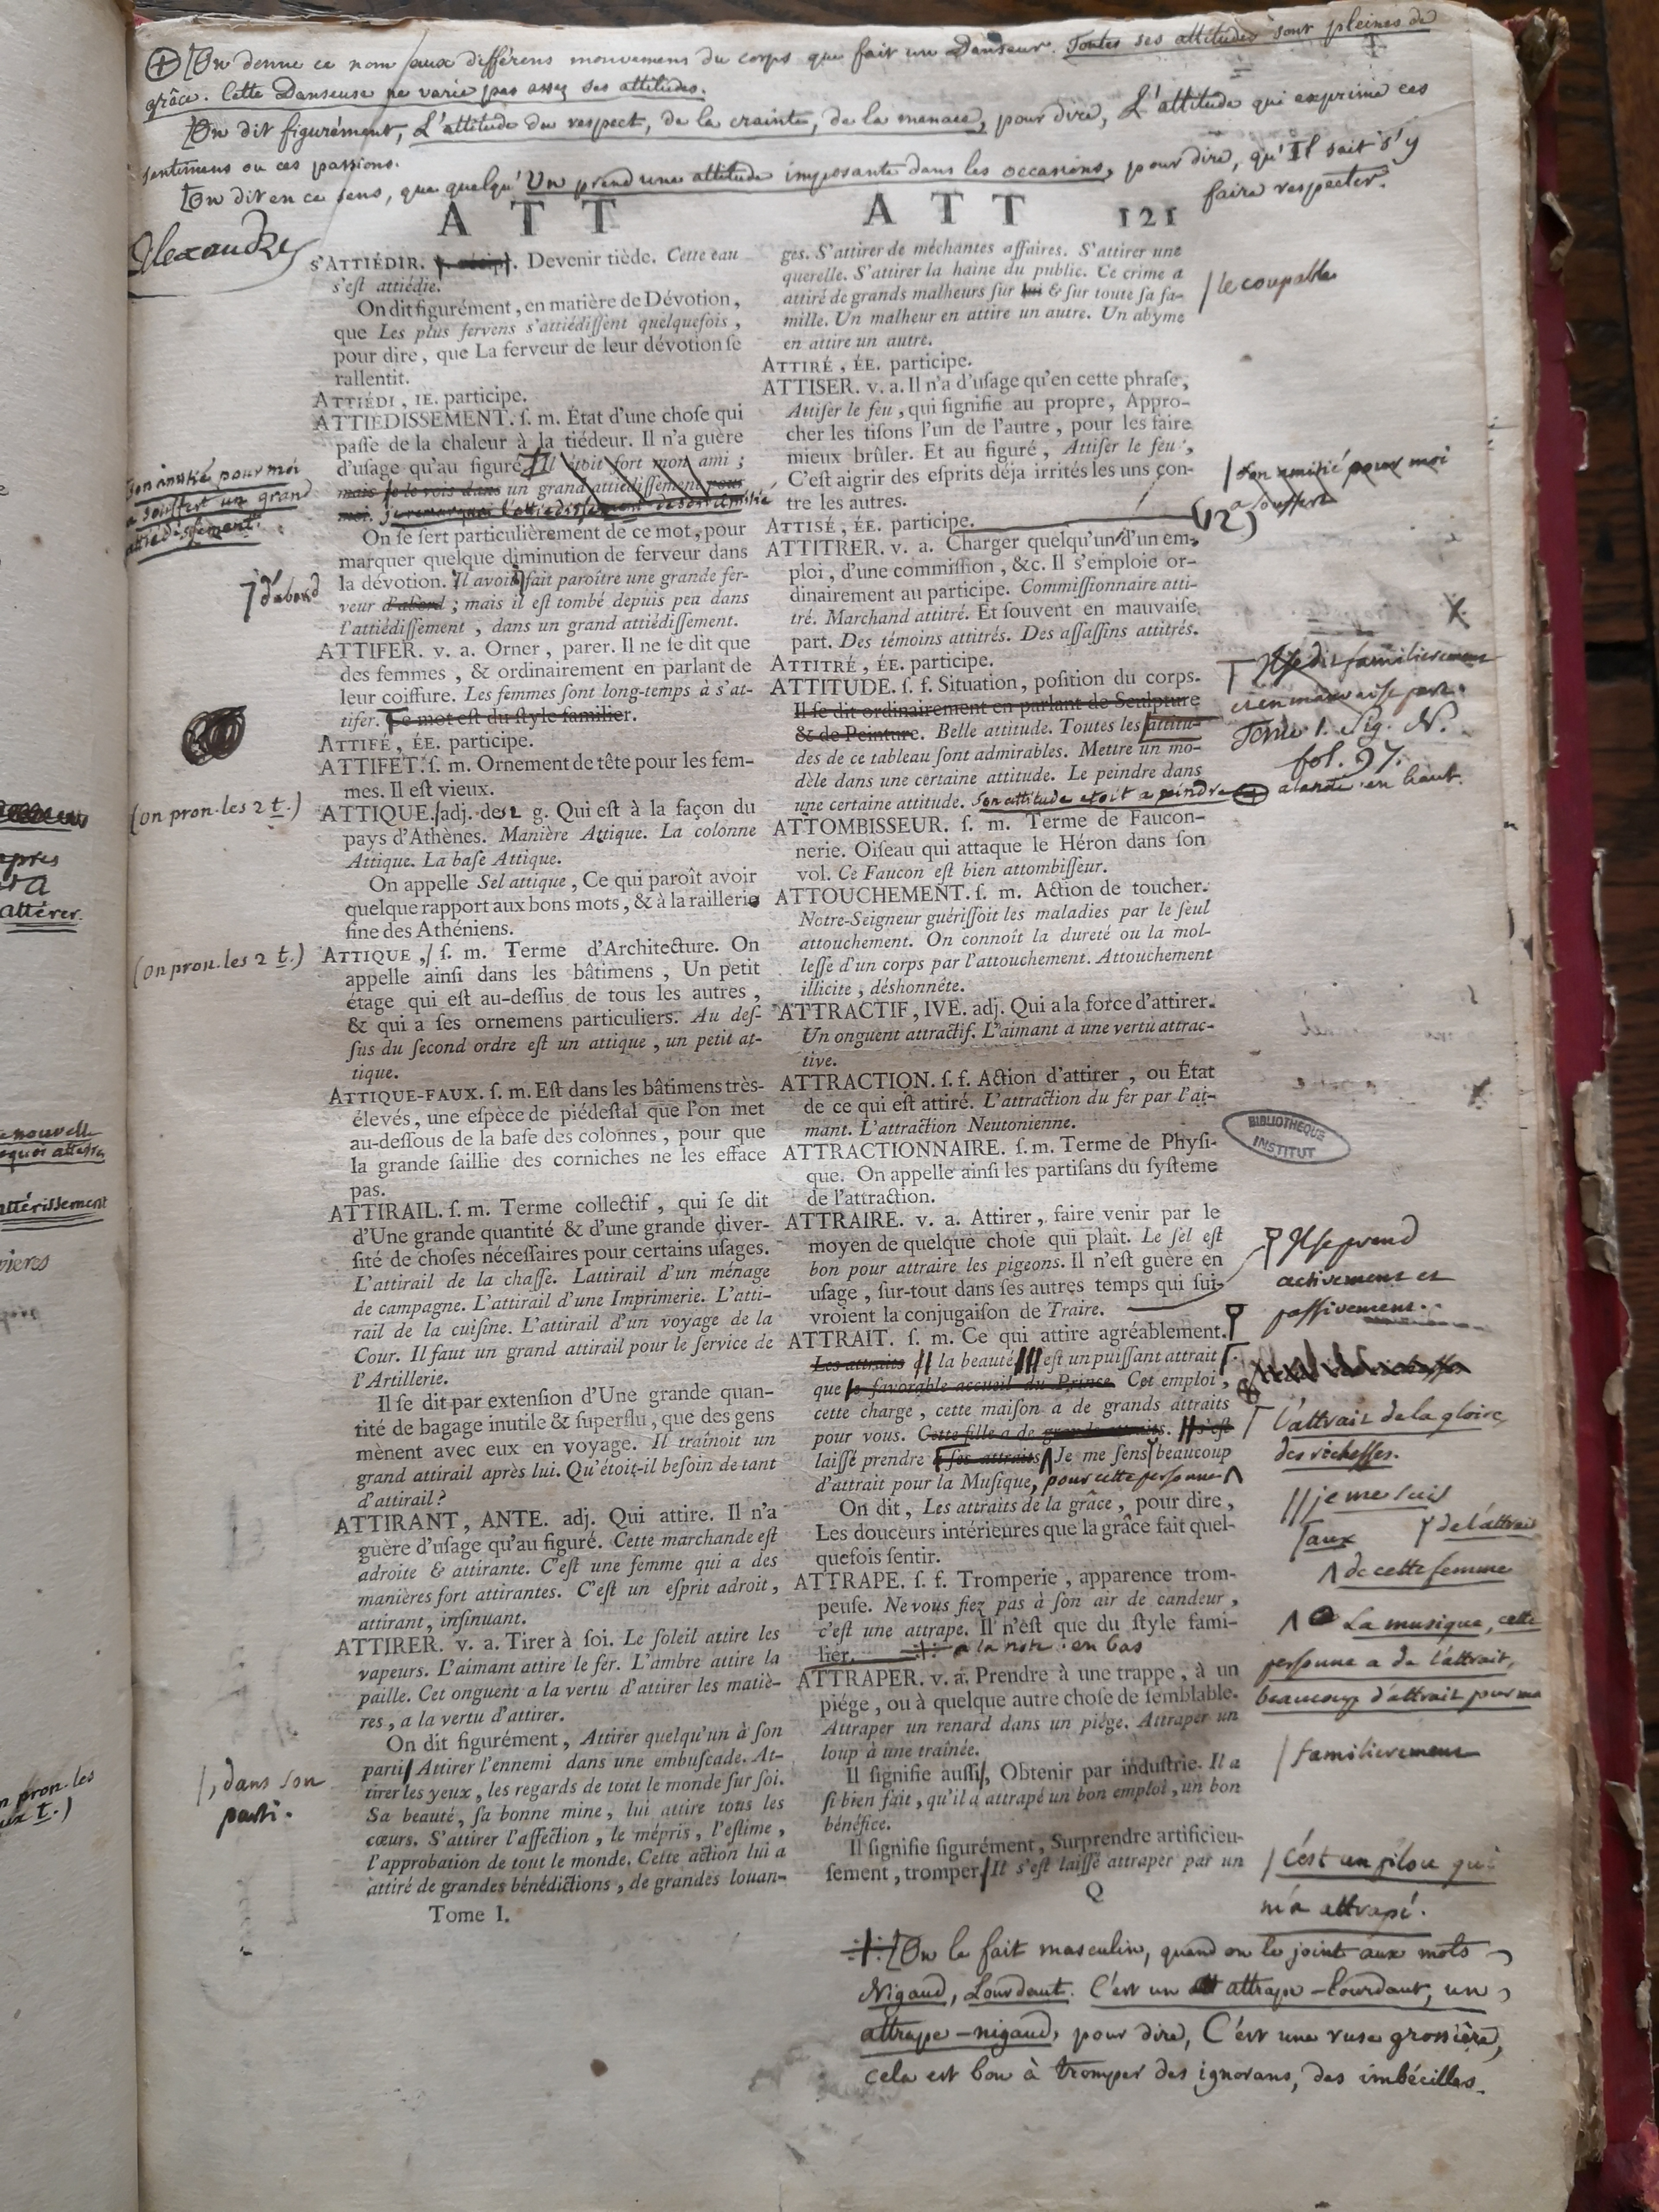 ⊕ [On donne ce nom aux différens mouvemens du corps que fait un Danseur. Toutes ses attitudes sont pleines de
grâce. Cette Danseuse ne varie pas assez ses attitudes.
[On dit figurément, L'attitude du respect, de la crainte, de la menace, pour dire, L'attitude qui exprime ces
sentimens ou ces passions.
[On dit en ce sens, que quelqu'Un prend une attitude imposante dans les occasions, pour dire, qu'Il sait s'y
faire respecter.
A T T
Alexandre
s'ATTIÉDIR. Devenir tiède. Cette eau
s'eſt attiédie.
On dit figurément, en matière de Dévotion,
que Les plus fervens s'attiédiſſent quelquefois,
pour dire, que La ferveur de leur dévotion ſe
rallentit.
ATTIÉDI, IE. participe.
ATTIÉDISSEMENT. ſ. m. État d'une choſe qui
paſſe de la chaleur à la tiédeur. Il n'a guère
d'uſage qu'au figuré. Il étoit fort mon ami ;
mais je le vois dans un grand attiédiſſement pour
moi. je remarque l'attiédissement de son amitié
son amitié pour moi
a souffert un grand
attiédissement.
On ſe ſert particulièrement de ce mot, pour
marquer quelque diminution de ferveur dans
la dévotion. Il avoit fait paroître une grande fer-
veur d'abord ; mais il eſt tombé depuis peu dans
l'attiédiſſement, dans un grand attiédiſſement.
d'abord
ATTIFER. v. a. Orner, parer. Il ne ſe dit que
des femmes, & ordinairement en parlant de
leur coiffure. Les femmes ſont long-temps à s'at-
tifer. Ce mot eſt du ſtyle familier.
ATTIFÉ, ÉE. participe.
ATTIFET. ſ. m. Ornement de tête pour les fem-
mes. Il eſt vieux.
(on pron. les 2 t.)
ATTIQUE. adj. de 2 g. Qui eſt à la façon du
pays d'Athènes. Manière Attique. La colonne
Attique. La baſe Attique.
On appelle Sel attique, Ce qui paroît avoir
quelque rapport aux bons mots, & à la raillerie
fine des Athéniens.
(on pron. les 2 t.)
ATTIQUE, ſ. m. Terme d'Architecture. On
appelle ainſi dans les bâtimens, Un petit
étage qui eſt au-deſſus de tous les autres,
& qui a ſes ornemens particuliers. Au deſ-
ſus du ſecond ordre eſt un attique, un petit at-
tique.
ATTIQUE-FAUX. ſ. m. Eſt dans les bâtimens très-
élevés, une eſpèce de piédeſtal que l'on met
au-deſſous de la baſe des colonnes, pour que
la grande ſaillie des corniches ne les efface
pas.
ATTIRAIL. ſ. m. Terme collectif, qui ſe dit
d'Une grande quantité & d'une grande diver-
ſité de choſes néceſſaires pour certains uſages.
L'attirail de la chaſſe. Lattirail d'un ménage
de campagne. L'attirail d'une Imprimerie. L'atti-
rail de la cuiſine. L'attirail d'un voyage de la
Cour. Il faut un grand attirail pour le ſervice de
l'Artillerie.
Il ſe dit par extenſion d'Une grande quan-
tité de bagage inutile & ſuperflu, que des gens
mènent avec eux en voyage. Il traînoit un
grand attirail après lui. Qu'étoit-il beſoin de tant
d'attirail ?
ATTIRANT, ANTE. adj. Qui attire. Il n'a
guère d'uſage qu'au figuré. Cette marchande eſt
adroite & attirante. C'eſt une femme qui a des
manières fort attirantes. C'eſt un eſprit adroit,
attirant, inſinuant.
ATTIRER. v. a. Tirer à ſoi. Le ſoleil attire les
vapeurs. L'aimant attire le fer. L'ambre attire la
paille. Cet onguent a la vertu d'attirer les matiè-
res, a la vertu d'attirer.
On dit figurément, Attirer quelqu'un à ſon
parti. Attirer l'ennemi dans une embuſcade. At-
tirer les yeux, les regards de tout le monde ſur ſoi.
Sa beauté, ſa bonne mine, lui attire tous les
cœurs. S'attirer l'affection, le mépris, l'eſtime,
l'approbation de tout le monde. Cette action lui a
attiré de grandes bénédictions, de grandes louan-
, dans son
parti.
Tome I.
A T T 121
ges. S'attirer de méchantes affaires. S'attirer une
querelle. S'attirer la haine du public. Ce crime a
attiré de grands malheurs ſur lui & ſur toute ſa fa-
mille. Un malheur en attire un autre. Un abyme
en attire un autre.
le coupable
ATTIRÉ, ÉE. participe.
ATTISER. v. a. Il n'a d'uſage qu'en cette phraſe,
Attiſer le feu, qui ſignifie au propre, Appro-
cher les tiſons l'un de l'autre, pour les faire
mieux brûler. Et au figuré, Attiſer le feu,
C'eſt aigrir des eſprits déja irrités les uns con-
tre les autres.
son amitié pour moi
a souffert
ATTISÉ, ÉE. participe.
ATTITRER. v. a. Charger quelqu'un d'un em-
ploi, d'une commiſſion, &c. Il s'emploie or-
dinairement au participe. Commiſſionnaire atti-
tré. Marchand attitré. Et ſouvent en mauvaiſe
part. Des témoins attitrés. Des aſſaſſins attitrés.
ATTITRÉ, ÉE. participe.
Il se dit familierement
et en mauvaise part.
ATTITUDE. ſ. f. Situation, poſition du corps.
Il ſe dit ordinairement en parlant de Sculpture
& de Peinture. Belle attitude. Toutes les attitu-
des de ce tableau ſont admirables. Mettre un mo-
dèle dans une certaine attitude. Le peindre dans
une certaine attitude. Son attitude etoit a peindre ⊕
Tome 1. Sig. N.
fol. 97.
ATTOMBISSEUR. ſ. m. Terme de Faucon-
nerie. Oiſeau qui attaque le Héron dans ſon
vol. Ce Faucon eſt bien attombiſſeur.
ATTOUCHEMENT. ſ. m. Action de toucher.
Notre-Seigneur guériſſoit les maladies par le ſeul
attouchement. On connoît la dureté ou la mol-
leſſe d'un corps par l'attouchement. Attouchement
illicite, déshonnête.
ATTRACTIF, IVE. adj. Qui a la force d'attirer.
Un onguent attractif. L'aimant a une vertu attrac-
tive.
ATTRACTION. ſ. f. Action d'attirer, ou État
de ce qui eſt attiré. L'attraction du fer par l'ai-
mant. L'attraction Neutonienne.
BIBLIOTHEQUE
INSTITUT
ATTRACTIONNAIRE. ſ. m. Terme de Phyſi-
que. On appelle ainſi les partiſans du ſyſteme
de l'attraction.
ATTRAIRE. v. a. Attirer, faire venir par le
moyen de quelque choſe qui plaît. Le ſel eſt
bon pour attraire les pigeons. Il n'eſt guère en
uſage, ſur-tout dans ſes autres temps qui ſui-
vroient la conjugaiſon de Traire.
Il se prend
activement et
passivement.
ATTRAIT. ſ. m. Ce qui attire agréablement.
Les attraits la beauté eſt un puiſſant attrait
que le favorable accueil du Prince. Cet emploi,
cette charge, cette maiſon a de grands attraits
pour vous. Cette fille a de grands attraits. s'eſt
laiſſé prendre ſes attraits Je me ſens beaucoup
d'attrait pour la Muſique, pour cette personne
l'attrait de la gloire,
des richesses.
je me suis
aux de l'attrait
de cette femme
La musique, cette
personne a de l'attrait,
beaucoup d'attrait pour moi
On dit, Les attraits de la grâce, pour dire,
Les douceurs intérieures que la grâce fait quel-
quefois ſentir.
ATTRAPE. ſ. f. Tromperie, apparence trom-
peuſe. Ne vous fiez pas à ſon air de candeur,
c'eſt une attrape. Il n'eſt que du ſtyle fami-
lier. a la note en bas
ATTRAPER. v. a. Prendre à une trappe, à un
piége, ou à quelque autre choſe de ſemblable.
Attraper un renard dans un piége. Attraper un
loup à une traînée.
familierement
Il ſignifie auſſi, Obtenir par induſtrie. Il a
ſi bien fait, qu'il a attrapé un bon emploi, un bon
bénéfice.
Il ſignifie figurément, Surprendre artificieu-
ſement, tromper. Il s'eſt laiſſé attraper par un
c'est un filou qui
m'a attrapé.
Q
[On le fait masculin, quand on le joint aux mots
Nigaud, Lourdaut. C'est un attrape-lourdaut, un
attrape-nigaud, pour dire, C'est une ruse grossière,
cela est bon à tromper des ignorans, des imbécilles.